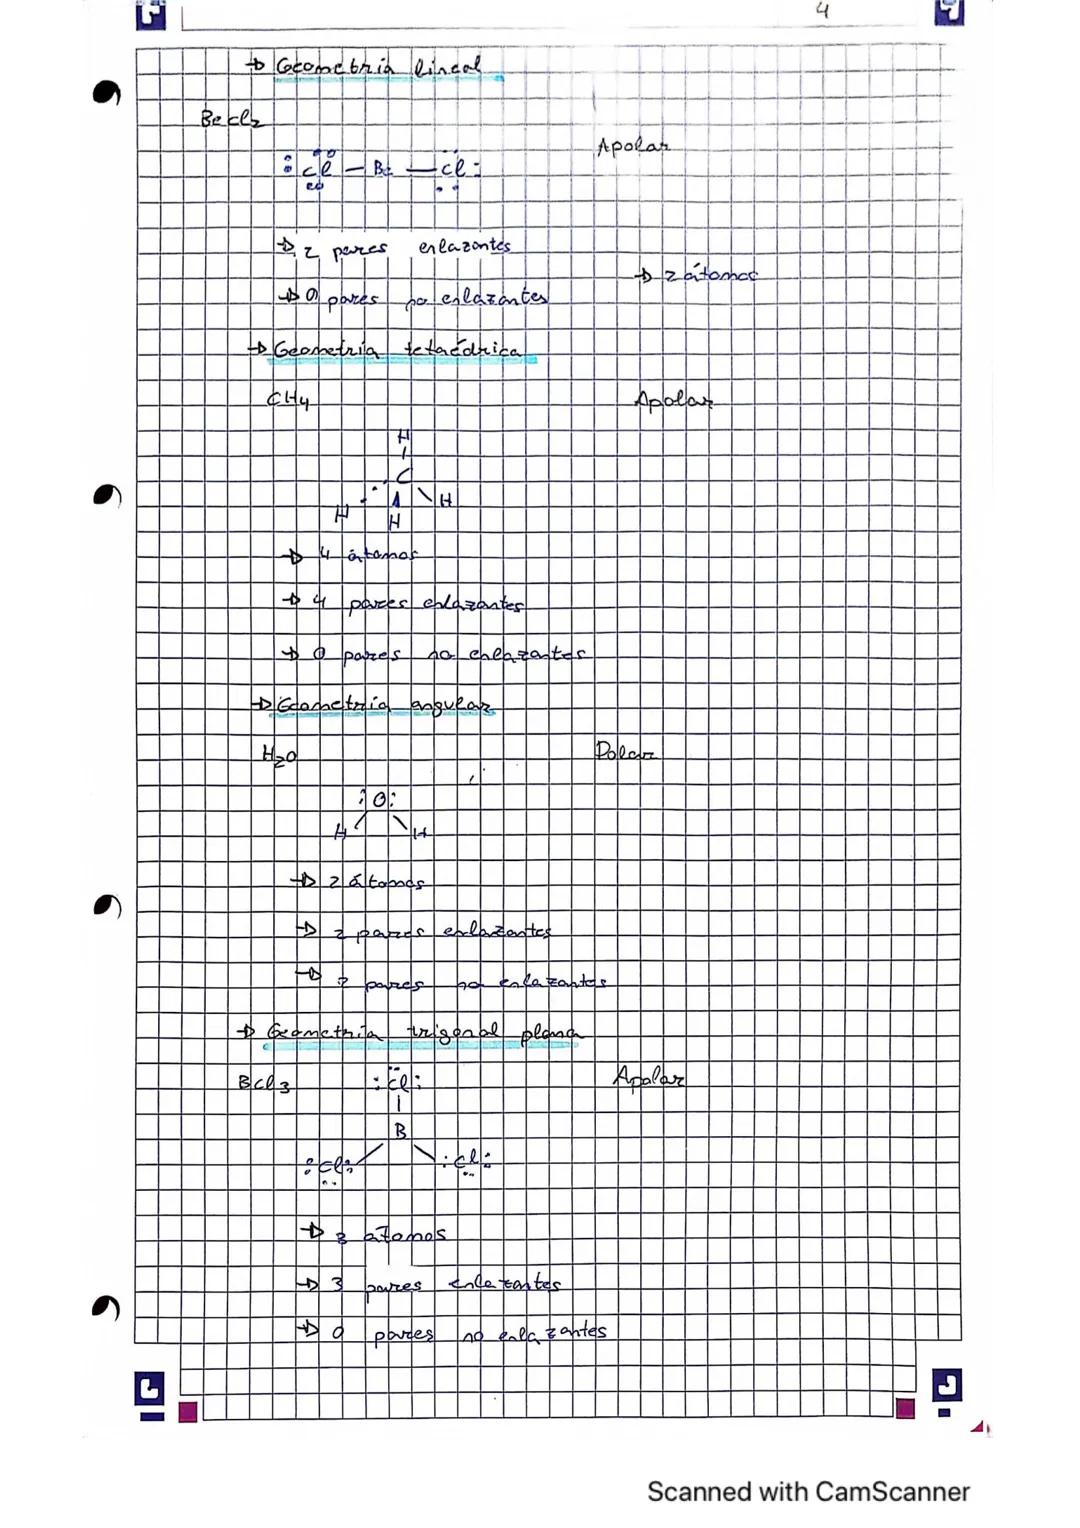 4
→ Geometría lineal
BeCl2
Apolar
:Cl — Be — Cl:
→ 2 pares enlazantes
→ 2 átomos
→ 0 pares no enlazantes
→ Geometría tetaédrica
CH4
Apolar
H
C
H H
H
→ 4 átomos
→ 4 pares enlazantes
→ 0 pares no enlazantes
→ Geometría angular
H2O
Polar
:O:
H H
→ 2 átomos
→ 2 pares enlazantes
→ 2 pares no enlazantes
→ Geometría trigonal plana
BCl3 :Cl: Apolar
B
:Cl: :Cl:
→ 3 átomos
→ 3 pares enlazantes
→ 0 pares no enlazantes
Scanned with CamScanner